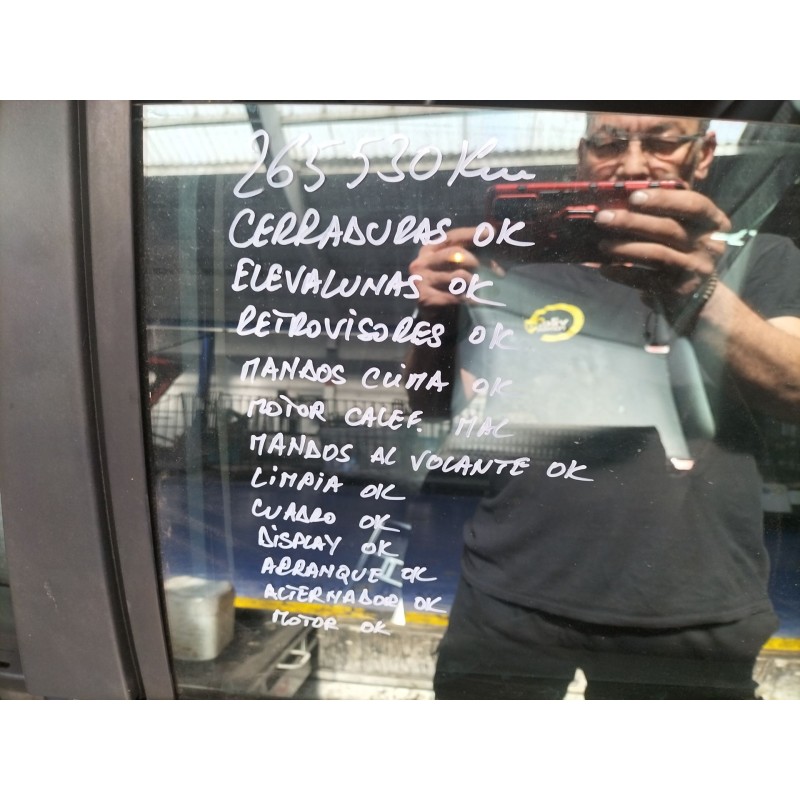 265530 Km
CERRADURAS OK
ELEVALUNAS OK
RETROVISORES OK
MANDOS CLIMA OK
MOTOR CALEF. MAL
MANDOS AL VOLANTE OK
LIMPIA OK
CUADRO OK
DISPLAY OK
ARRANQUE OK
ALTERNADOR OK
MOTOR OK